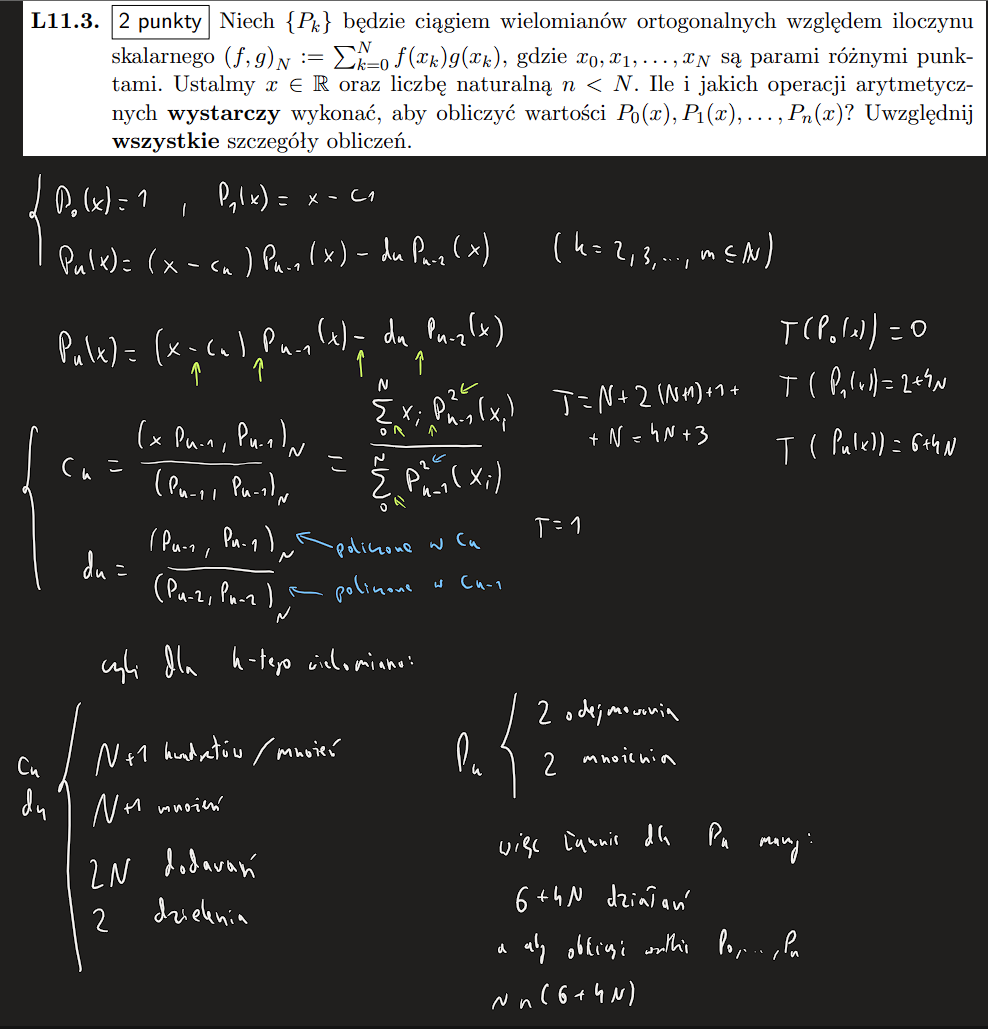 L11.3. 2 punkty Niech {P_k} będzie ciągiem wielomianów ortogonalnych względem iloczynu
skalarnego (f, g)_N := ∑_{k=0}^{N} f(x_k)g(x_k), gdzie x_0, x_1, . . . , x_N są parami różnymi punk-
tami. Ustalmy x ∈ ℝ oraz liczbę naturalną n < N. Ile i jakich operacji arytmetycz-
nych wystarczy wykonać, aby obliczyć wartości P_0(x), P_1(x), . . . , P_n(x)? Uwzględnij
wszystkie szczegóły obliczeń.
P_0(x) = 1 , P_1(x) = x - c_1
P_k(x) = (x - c_k) P_{k-1}(x) - d_k P_{k-2}(x) (k = 2, 3, ..., m ≤ N)
P_k(x) = (x - c_k) P_{k-1}(x) - d_k P_{k-2}(x)
T(P_0(x)) = 0
T(P_1(x)) = 2+4N
T(P_k(x)) = 6+4N
c_k = (x P_{k-1}, P_{k-1})_N / (P_{k-1}, P_{k-1})_N = ∑_0^N x_i P_{k-1}^2(x_i) / ∑_0^N P_{k-1}^2(x_i)
T = N + 2(N+1) + 1 +
+ N = 4N + 3
d_k = (P_{k-1}, P_{k-1})_N / (P_{k-2}, P_{k-2})_N
policzone w c_k
policzone w c_{k-1}
T = 1
czyli dla k-tego wielomianu:
c_k
d_k
N+1 kwadratów / mnożeń
N+1 mnożeń
2N dodawań
2 dzielenia
P_k
2 odejmowania
2 mnożenia
więc łącznie dla P_k mamy:
6+4N działań
a aby obliczyć wszystkie P_0, ..., P_n
~ n(6+4N)